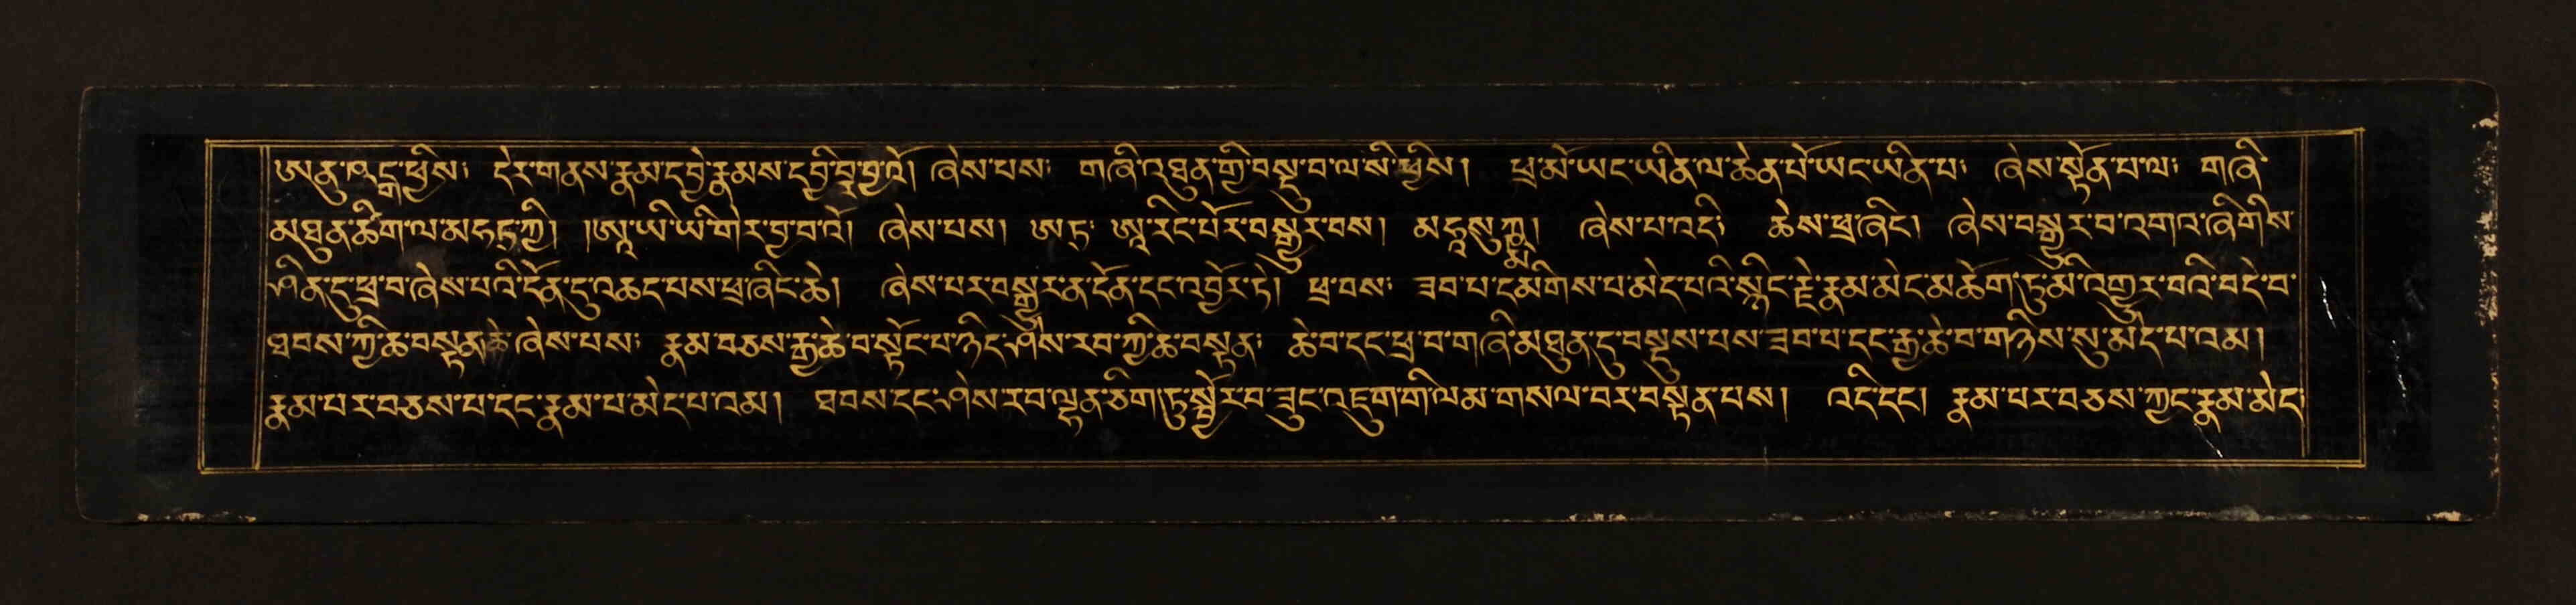 ཨནུ་ཥངྒ་ཕྱིས། དེར་གནས་རྣམ་དབྱེ་རྣམས་དབྱི་བྱ་བྱའོ། ཞེས་པས། གཞི་འཐུན་གྱི་བསྡུ་བ་ལ་སི་ཕྱིས། ཕྲ་མོ་ཡང་ཡིན་ལ་ཆེན་པོ་ཡང་ཡིན་པ། ཞེས་སྟོན་པ་ལ། གཞི་
མཐུན་ཚིག་ལ་མཧཏ་ཀྱི། །ཨཱ་ཡི་ཡི་གེར་བྱ་བའོ། ཞེས་པས། ཨ་ཏ་ ཨཱ་རིང་པོར་བསྒྱུར་བས། མཧཱསུཀྵྨ། ཞེས་པ་འདི། ཆེས་ཕྲ་ཞིང། ཞེས་བསྒྱུར་བ་འགའ་ཞིགིས་
ཤིན་དུ་ཕྲ་བ་ཞེས་པའི་དོན་དུ་འཆད་པས་ཕྲ་ཞིང་ཆེ། ཞེས་པར་བསྒྱུར་ན་དོན་དང་འབྱོར་ཏེ། ཕྲ་བས། ཟབ་པ་དམིགས་པ་མེད་པའི་སྙིང་རྗེ་རྣམ་མེད་མཆོག་ཏུ་མི་འགྱུར་བའི་བདེ་བ་
ཐབས་ཀྱི་ཆ་བསྟན། ཆེ་ཞེས་པས། རྣམ་བཅས་རྒྱ་ཆེ་བ་སྟོང་པ་ཉིད་ཤེས་རབ་ཀྱི་ཆ་བསྟན། ཆེ་བ་དང་ཕྲ་བ་གཞི་མཐུན་དུ་བསྡུས་པས་ཟབ་པ་དང་རྒྱ་ཆེ་བ་གཉིས་སུ་མེད་པ་འམ།
རྣམ་པར་བཅས་པ་དང་རྣམ་པ་མེད་པ་འམ། ཐབས་དང་ཤེས་རབ་ལྡན་ཅིག་ཏུ་སྦྱོར་བ་ཟུང་འཇུག་གི་ལམ་གསལ་བར་བསྟན་པས། འདི་དང། རྣམ་པར་བཅས་ཀྱང་རྣམ་མེད།